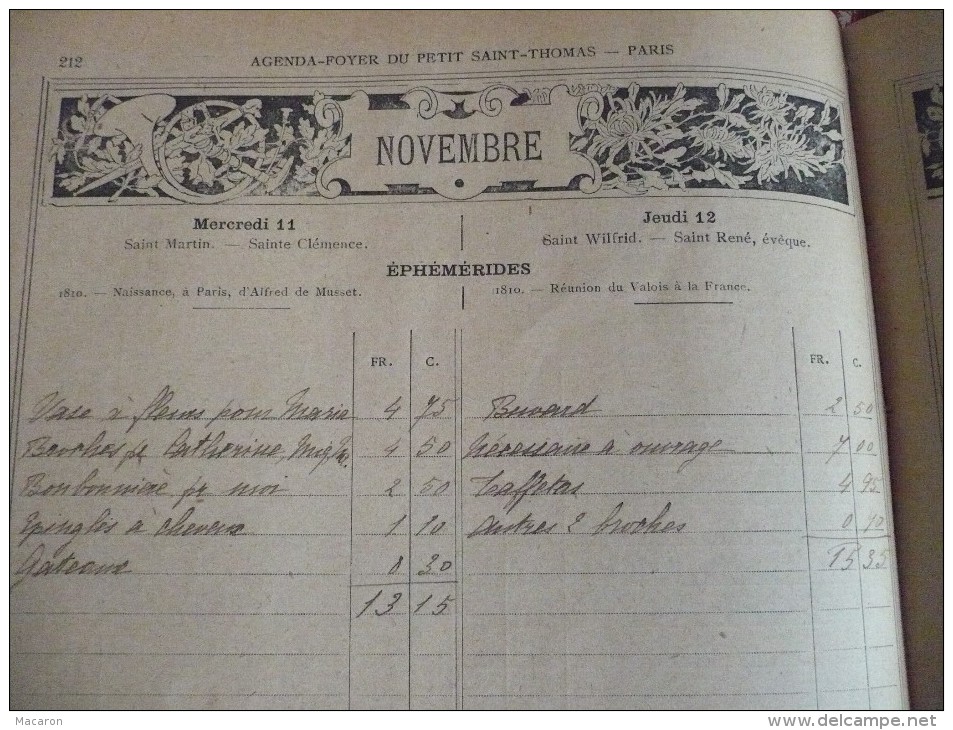 212
AGENDA-FOYER DU PETIT SAINT-THOMAS — PARIS
NOVEMBRE
Mercredi 11
Saint Martin. — Sainte Clémence.
Jeudi 12
Saint Wilfrid. — Saint René, évêque.
ÉPHÉMÉRIDES
1810. — Naissance, à Paris, d'Alfred de Musset.
1810. — Réunion du Valois à la France.
FR. C.
Vase à fleurs pour Marie 4 75
Broches pr Catherine, 4 50
Bonbonnière pr moi 2 50
Epingles à cheveux 1 10
Gateaux 0 30
13 15
FR. C.
Buvard 2 50
Nécessaire à ouvrage 7 00
Taffetas 4 95
Autres 2 broches 0 90
15 35
Macaron
delcampe.net